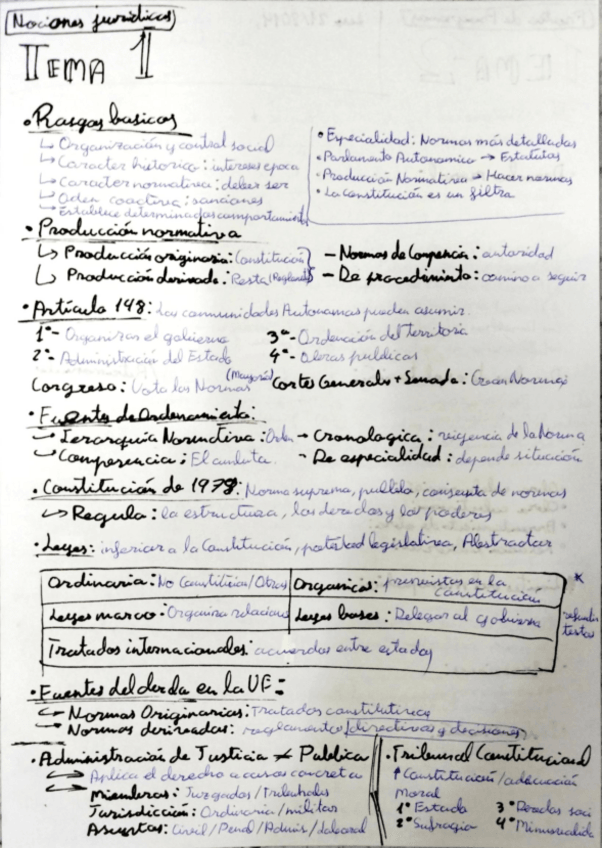 Nociones jurídicas
TEMA 1
• Rasgos basicos
↳ Organización y control social
↳ Caracter historico: intereses epoca
↳ Caracter normativa: deber ser
↳ Orden coactiva: sanciones
↳ Establece determinados comportamientos
• Especialidad: Normas más detalladas
• Parlamento Autonomico → Estatutos
• Producción Normativa → Hacer normas
• La constitución es un filtro
• Producción normativa
↳ Producción originaria: Constitución
↳ Producción derivada: Resta (Reglamento)
– Normas de Competencia: autoridad
– De procedimiento: camino a seguir
• Artículo 148: Las comunidades Autonomas pueden asumir.
1º- Organizar el gobierno
2º- Administración del Estado
3º- Ordenación del territorio
4º- Obras publicas
Congreso: Vota las Normas (Mayoría)
Cortes Generales + Senado: Crean Normas
• Fuentes de Ordenamiento:
→ Jerarquía Normativa: Orden
→ Competencia: El ambito.
→ Cronologica: vigencia de la Norma
→ De especialidad: depende situación
• Constitución de 1978: Norma suprema, conjunto de normas
↳ Regula: la estructura, los derechos y los poderes
• Leyes: inferior a la Constitución, potestad legislativa, Abstractas
Ordinaria: No Constitución/Otras
Organicas: previstas en la Constitución
Leyes marco: Organiza relaciones
Leyes bases: Delegar al gobierno
Tratados internacionales: acuerdos entre estados
*
textos
• Fuentes del derecho en la UE:
→ Normas Originarias: Tratados constitutivos
→ Normas derivadas: reglamentos/directivas y decisiones
• Administración de Justicia ≠ Publica
→ Aplica el derecho a casos concretos
→ Miembros: Juzgados/Tribunales
Jurisdicción: Ordinaria/militar
Asuntos: Civil/Penal/Admin/Laboral
• Tribunal Constitucional
↑ Constitución/adecuación
Moral
1º Estado
2º Sufragio
3º
4º